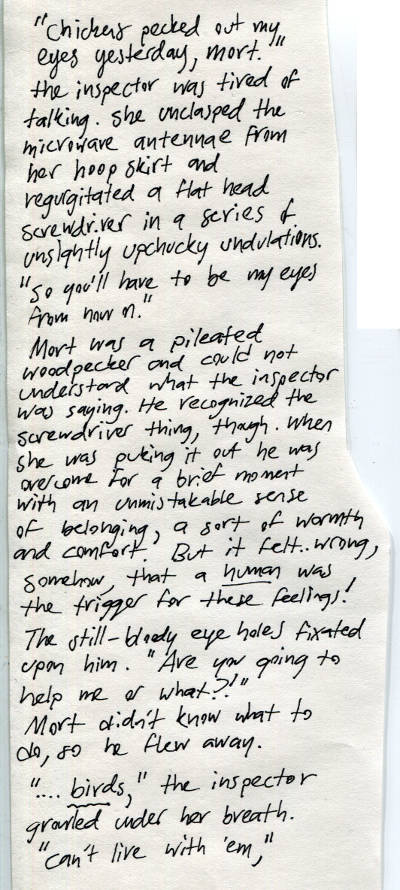 "Chickens pecked out my
eyes yesterday, mort."
the inspector was tired of
talking. she unclasped the
microwave antennae from
her hoop skirt and
regurgitated a flat head
screwdriver in a series of
unsightly upchucky undulations.
"So you'll have to be my eyes
from now on."
Mort was a pileated
woodpecker and could not
understand what the inspector
was saying. He recognized the
screwdriver thing, though. When
she was puking it out he was
overcome for a brief moment
with an unmistakable sense
of belonging, a sort of warmth
and comfort. But it felt..wrong,
somehow, that a human was
the trigger for these feelings!
The still-bloody eye holes fixated
upon him. "Are you going to
help me or what?!"
Mort didn't know what to
do, so he flew away.
".... birds," the inspector
growled under her breath.
"can't live with 'em,"